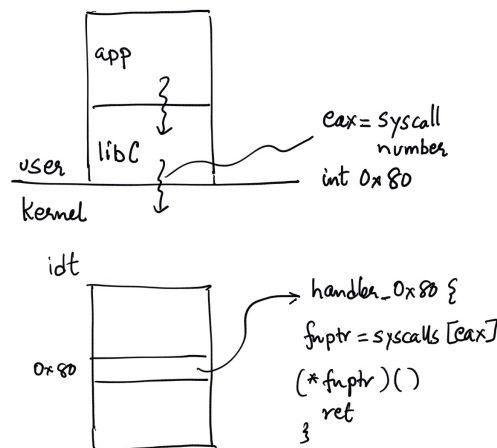 app
libC
user
Kernel
eax = syscall
number
int 0x80
idt
0x80
handler_0x80 {
fnptr = syscalls [eax]
(*fnptr)()
ret
}